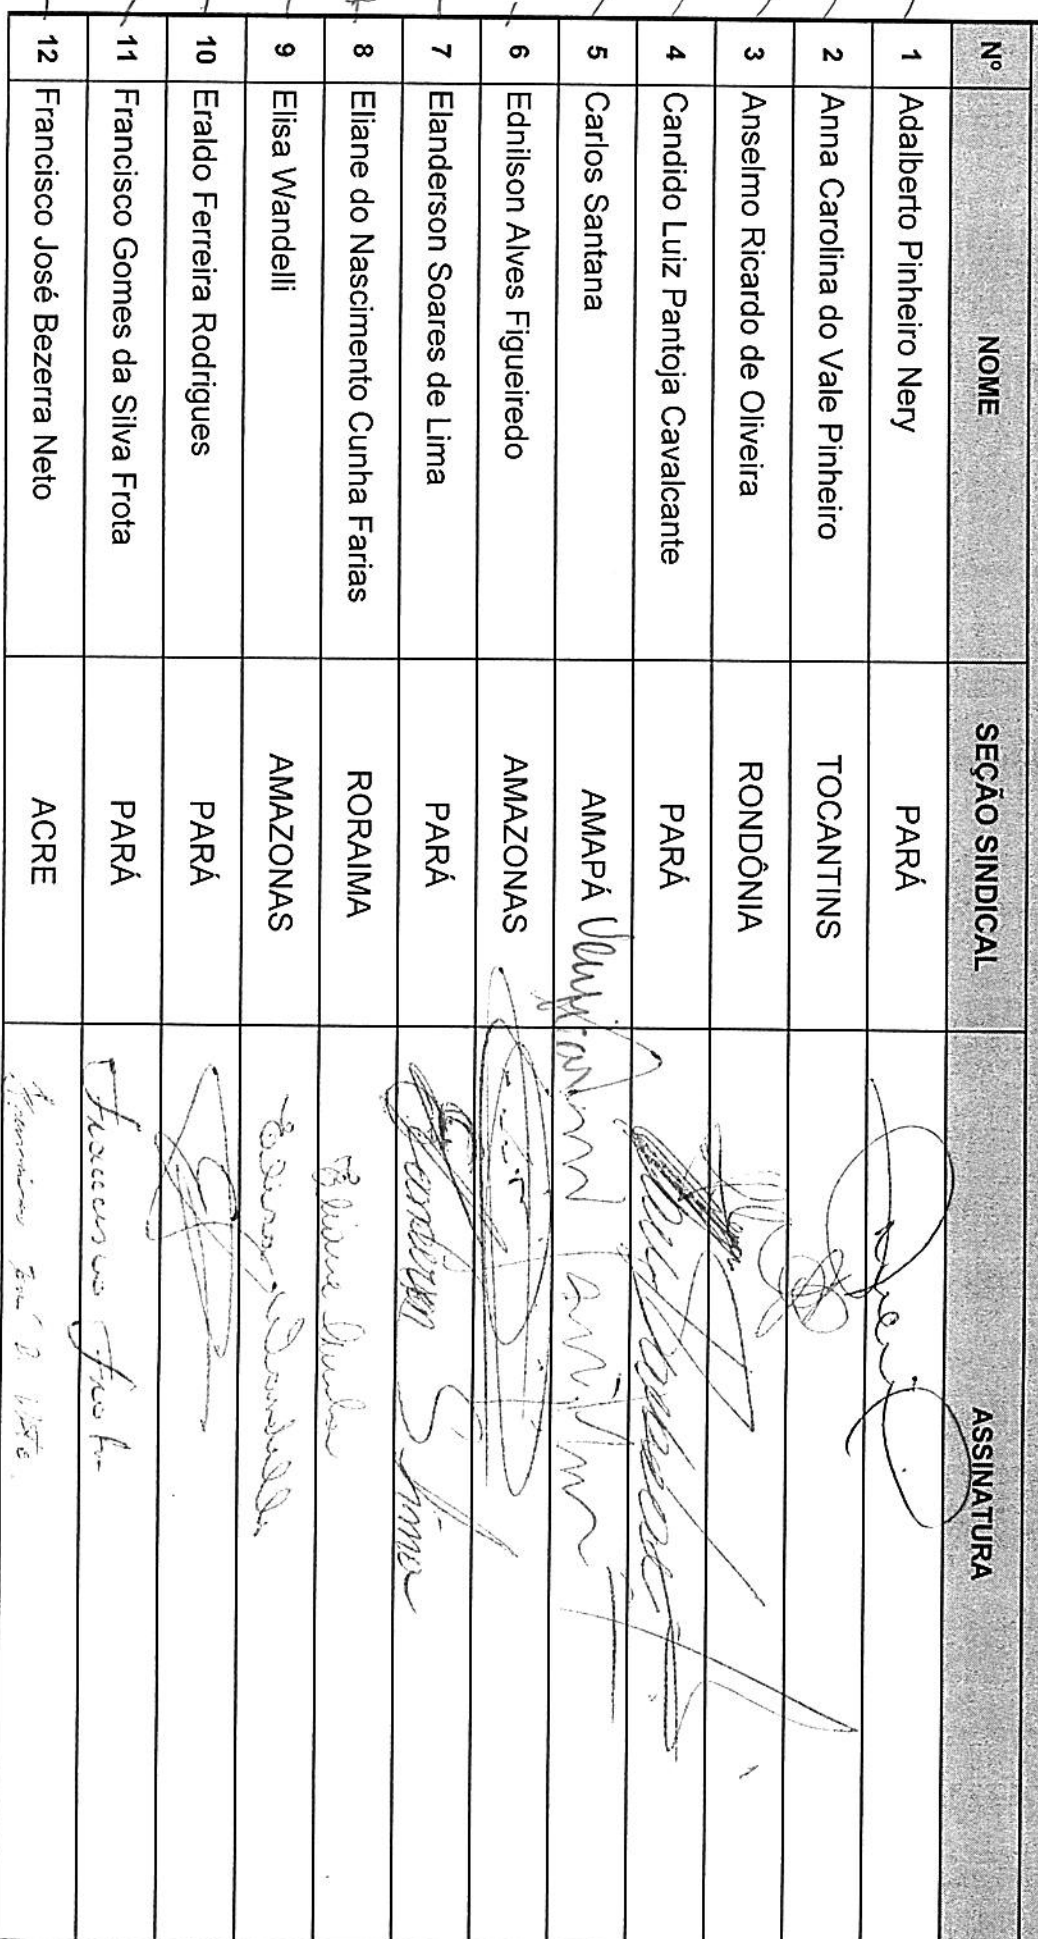 Nº NOME SEÇÃO SINDICAL ASSINATURA
1 Adalberto Pinheiro Nery PARÁ
2 Anna Carolina do Vale Pinheiro TOCANTINS
3 Anselmo Ricardo de Oliveira RONDÔNIA
4 Candido Luiz Pantoja Cavalcante PARÁ
5 Carlos Santana AMAPÁ
6 Ednilson Alves Figueiredo AMAZONAS
7 Elanderson Soares de Lima PARÁ Elanderson S. Lima
8 Eliane do Nascimento Cunha Farias RORAIMA Eliane Cunha
9 Elisa Wandelli AMAZONAS Elisa Wandelli
10 Eraldo Ferreira Rodrigues PARÁ
11 Francisco Gomes da Silva Frota PARÁ Francisco Frota
12 Francisco José Bezerra Neto ACRE Francisco José B. Neto